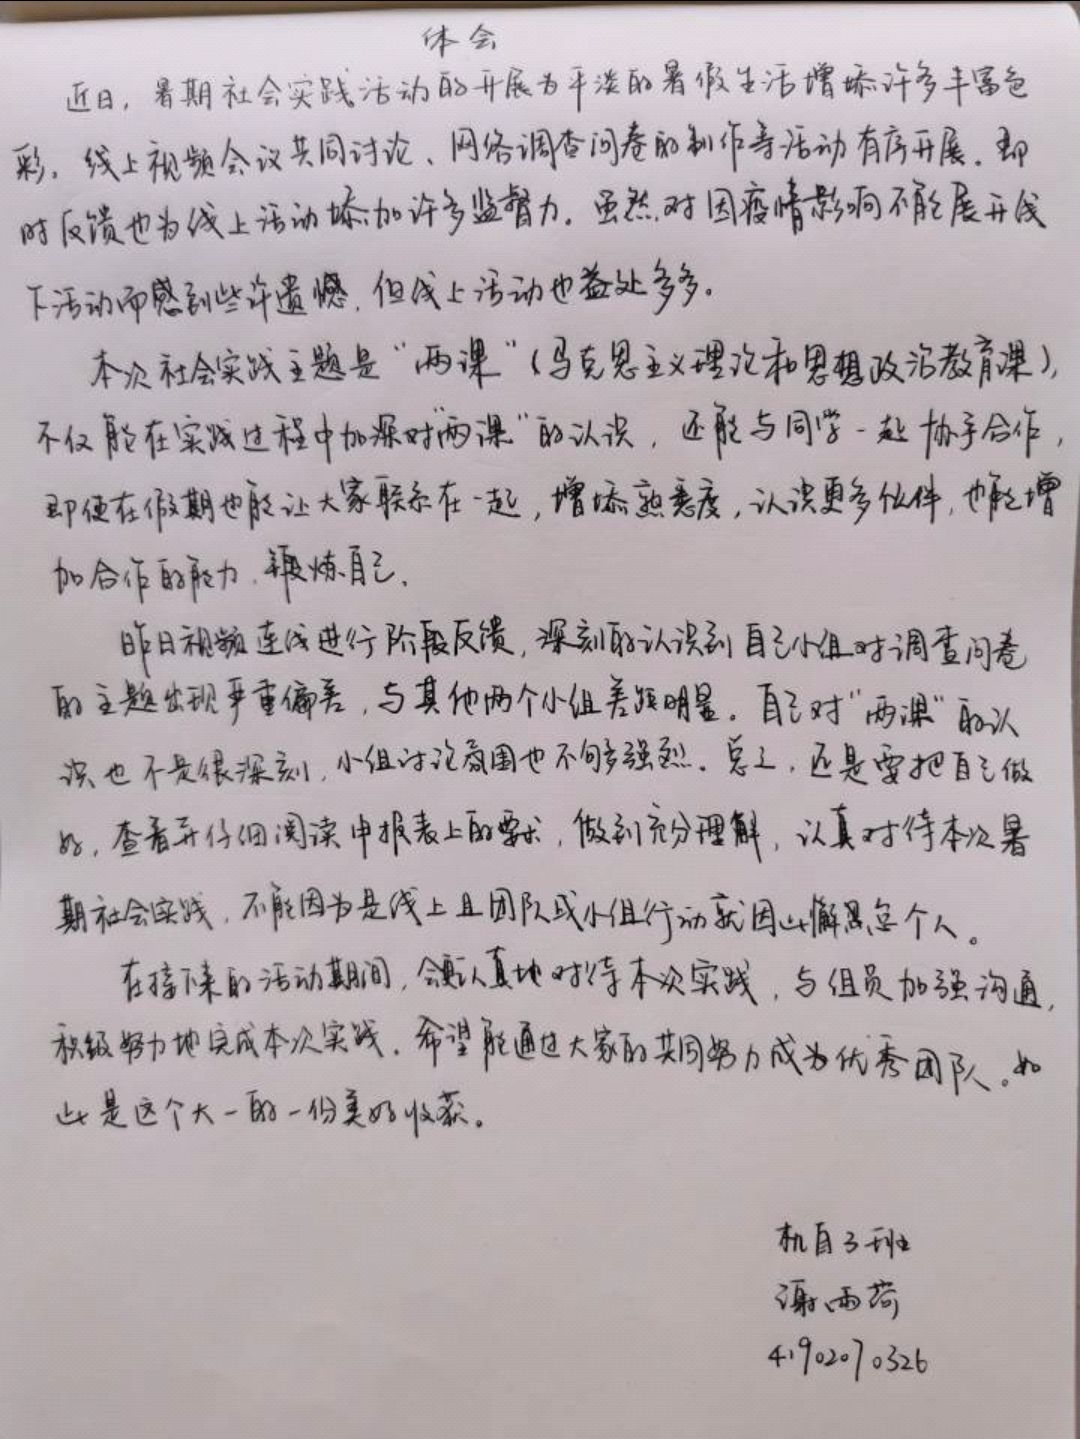 体会
近日，暑期社会实践活动的开展为平淡的暑假生活增添许多丰富色
彩。线上视频会议共同讨论、网络调查问卷的制作等活动有序开展，即
时反馈也为线上活动添加许多监督力。虽然，对因疫情影响不能展开线
下活动而感到些许遗憾，但线上活动也益处多多。
本次社会实践主题是“两课”（马克思主义理论和思想政治教育课），
不仅能在实践过程中加深对“两课”的认识，还能与同学一起协手合作，
即便在假期也能让大家联系在一起，增添熟悉度，认识更多伙伴，也能增
加合作的能力，锻炼自己。
昨日视频连线进行阶段反馈，深刻的认识到自己小组对调查问卷
的主题出现严重偏差，与其他两个小组差距明显。自己对“两课”的认
识也不是很深刻，小组讨论氛围也不够强烈。总之，还是要把自己做
好，查看并仔细阅读申报表上的要求，做到充分理解，认真对待本次暑
期社会实践，不能因为是线上且团队或小组行动就因此懈怠个人。
在接下来的活动期间，会更认真地对待本次实践，与组员加强沟通，
积极努力地完成本次实践。希望能通过大家的共同努力成为优秀团队。如
此是这个大一的一份美好收获。
机自3班
谢雨荷
41902070326